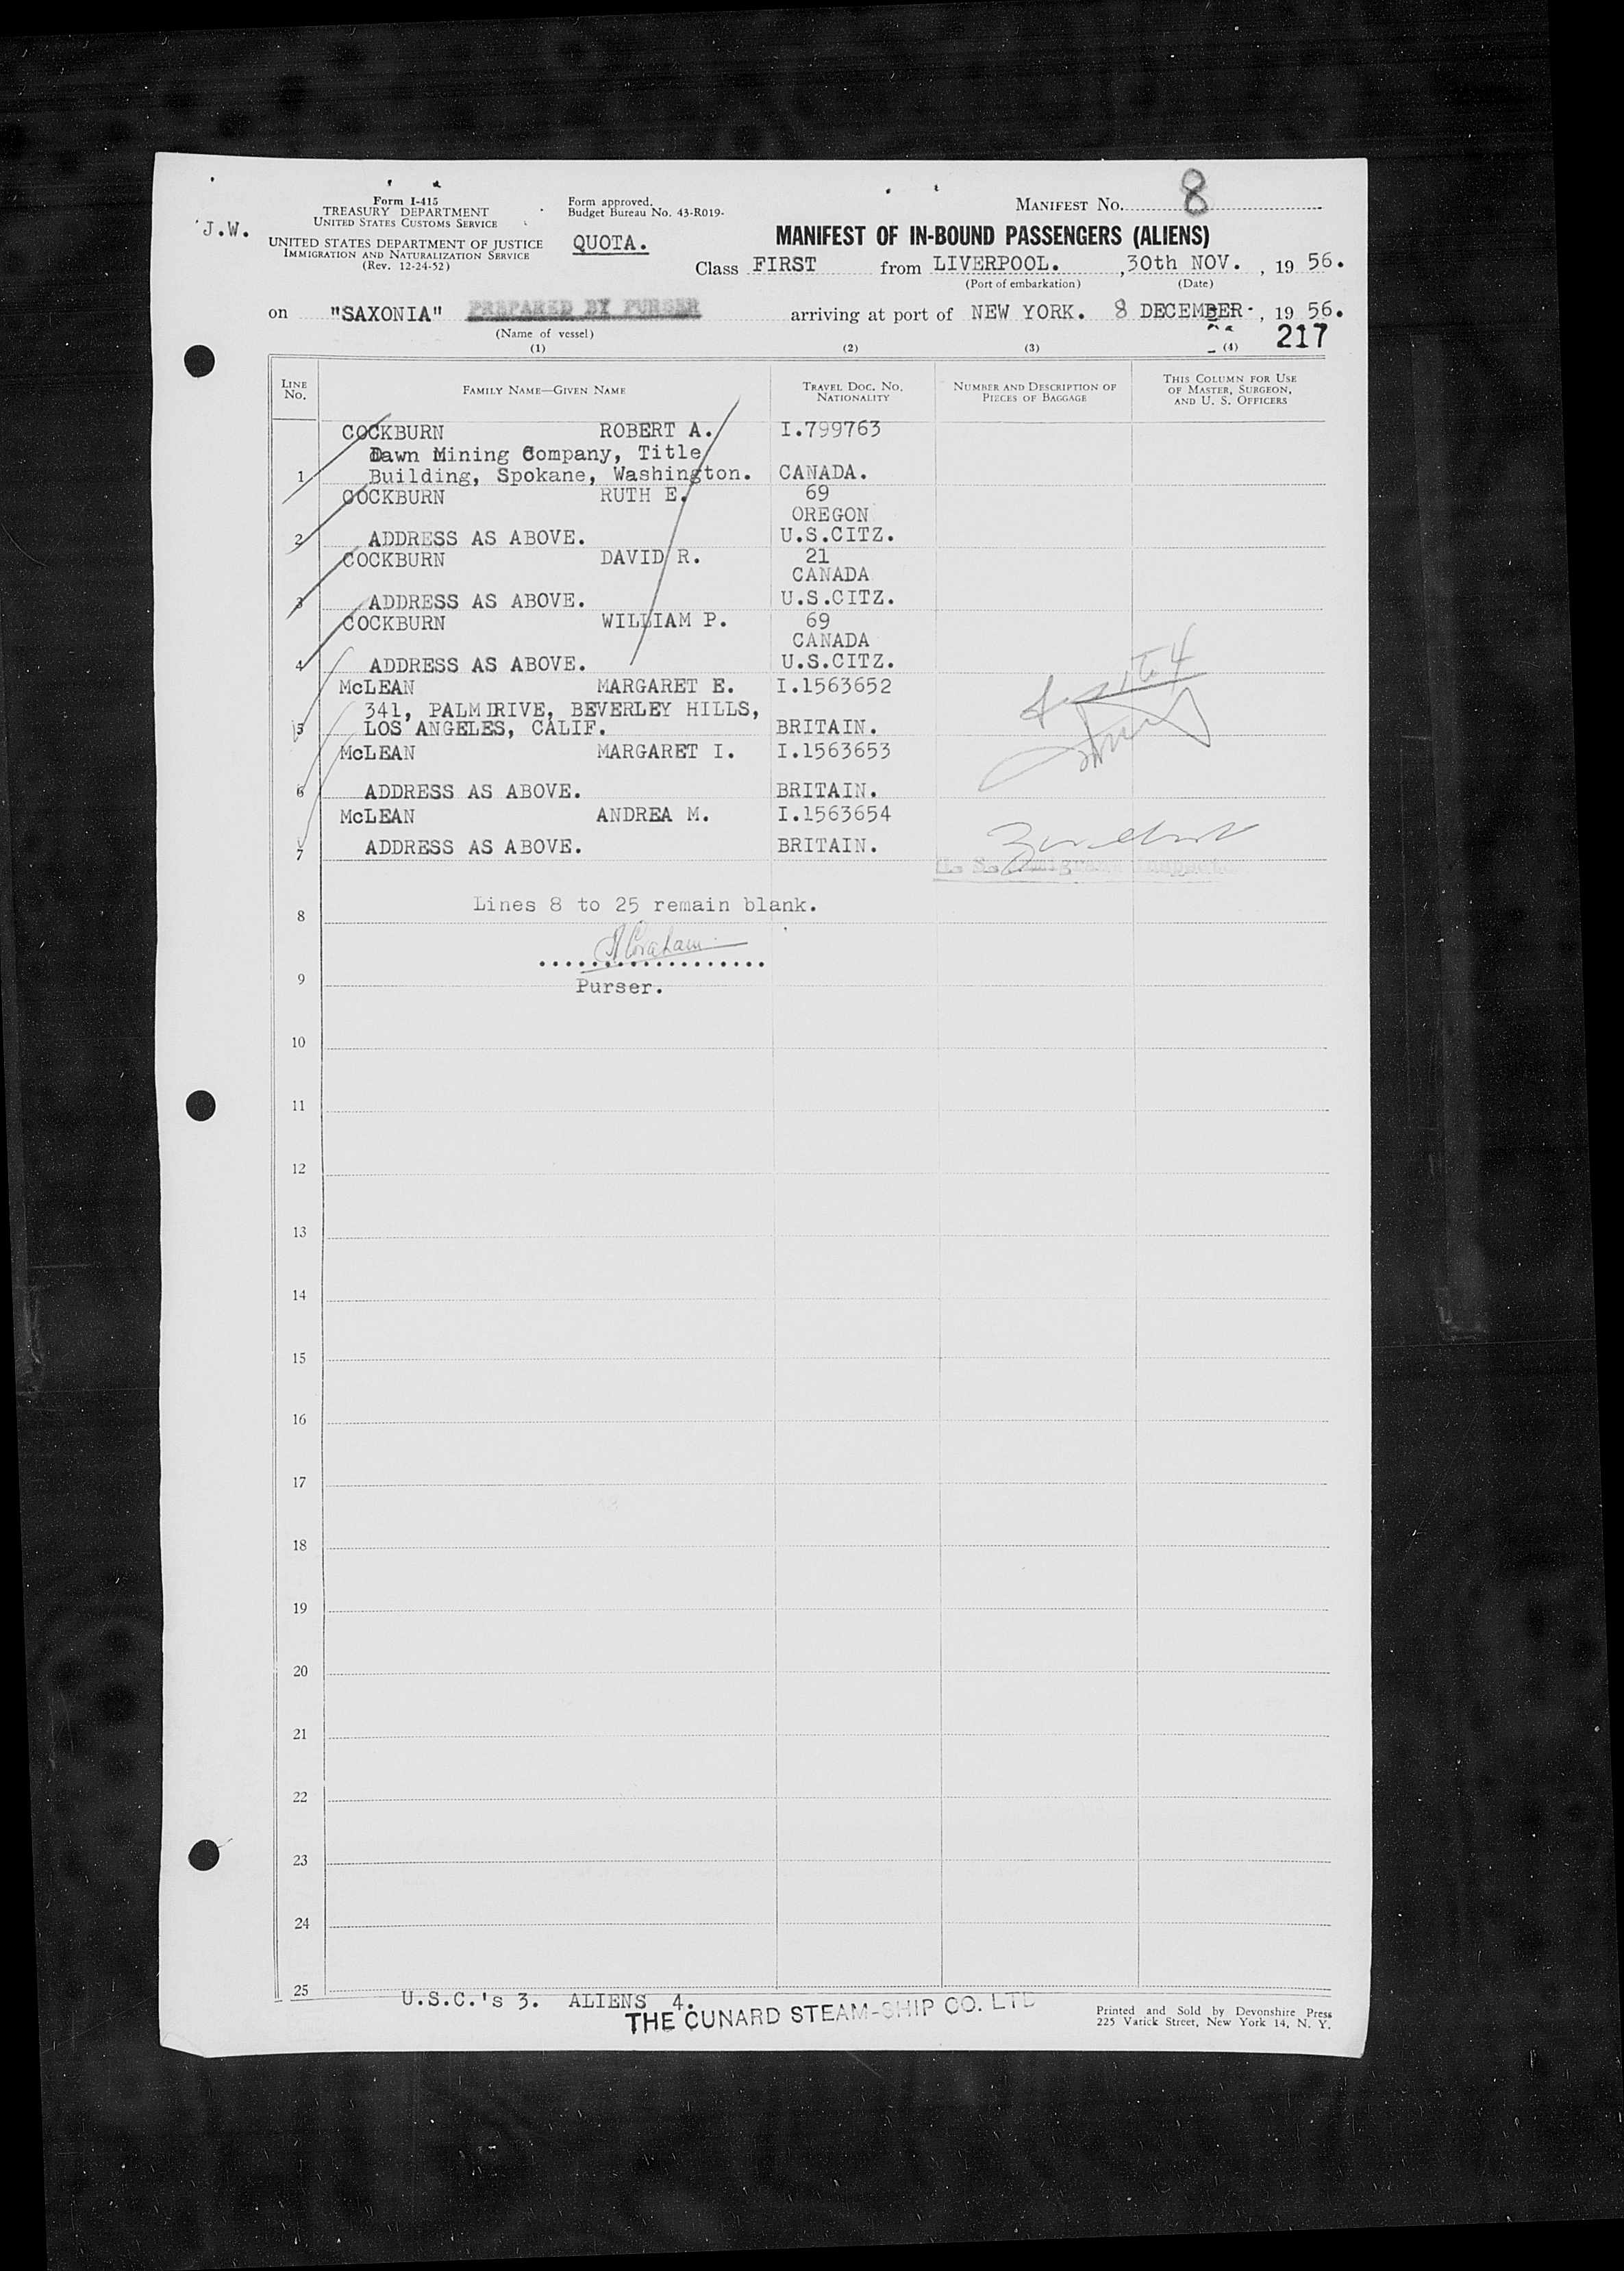 J.W.
Form I-415
TREASURY DEPARTMENT
UNITED STATES CUSTOMS SERVICE
UNITED STATES DEPARTMENT OF JUSTICE
IMMIGRATION AND NATURALIZATION SERVICE
(Rev. 12-24-52)
Form approved.
Budget Bureau No. 43-R019-
QUOTA.
MANIFEST No. 8
MANIFEST OF IN-BOUND PASSENGERS (ALIENS)
Class FIRST from LIVERPOOL. , 30th NOV. , 19 56.
(Port of embarkation) (Date)
on "SAXONIA" PREPARED BY PURSER arriving at port of NEW YORK. 8 DECEMBER , 19 56.
(Name of vessel)
217
(1) (2) (3) (4)
LINE No. FAMILY NAME—GIVEN NAME TRAVEL DOC. NO. NATIONALITY NUMBER AND DESCRIPTION OF PIECES OF BAGGAGE THIS COLUMN FOR USE OF MASTER, SURGEON, AND U. S. OFFICERS
COCKBURN ROBERT A. I.799763
Dawn Mining Company, Title
1 Building, Spokane, Washington. CANADA.
COCKBURN RUTH E. 69
OREGON
2 ADDRESS AS ABOVE. U.S.CITZ.
COCKBURN DAVID R. 21
CANADA
3 ADDRESS AS ABOVE. U.S.CITZ.
COCKBURN WILLIAM P. 69
CANADA
4 ADDRESS AS ABOVE. U.S.CITZ.
McLEAN MARGARET E. I.1563652
341, PALM DRIVE, BEVERLEY HILLS,
5 LOS ANGELES, CALIF. BRITAIN.
McLEAN MARGARET I. I.1563653
6 ADDRESS AS ABOVE. BRITAIN.
McLEAN ANDREA M. I.1563654
7 ADDRESS AS ABOVE. BRITAIN.
Lines 8 to 25 remain blank.
8
9
Purser.
10
11
12
13
14
15
16
17
18
19
20
21
22
23
24
25
U.S.C.'s 3. ALIENS 4.
THE CUNARD STEAM-SHIP CO. LTD
Printed and Sold by Devonshire Press
225 Varick Street, New York 14, N. Y.